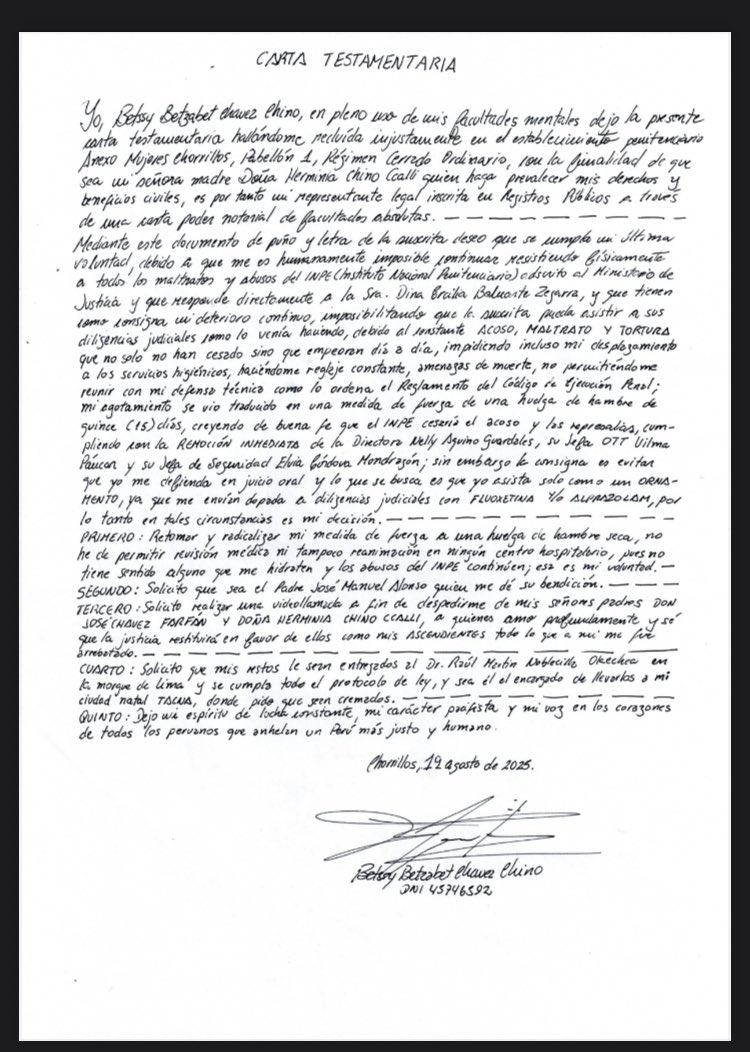 CARTA TESTAMENTARIA
Yo, Betssy Betzabet Chavez Chino, en pleno uso de mis facultades mentales dejo la presente
carta testamentaria hallándome recluida injustamente en el establecimiento penitenciario
Anexo Mujeres Chorrillos, Pabellón 1, Régimen Cerrado Ordinario, con la finalidad de que
sea mi señora madre Doña Herminia Chino Ccalli quien haga prevalecer mis derechos y
beneficios civiles, es por tanto mi representante legal inscrita en Registros Públicos a través
de una carta poder notarial de facultades absolutas. — — — — — — — — — — —
Mediante este documento de puño y letra de la suscrita deseo que se cumpla mi última
voluntad, debido a que me es humanamente imposible continuar resistiendo físicamente
a todos los maltratos y abusos del INPE (Instituto Nacional Penitenciario) adscrito al Ministerio de
Justicia y que responde directamente a la Sra. Dina Ercilia Boluarte Zegarra, y que tienen
como consigna mi deterioro continuo, imposibilitando que la suscrita pueda asistir a sus
diligencias judiciales como lo venía haciendo, debido al constante ACOSO, MALTRATO Y TORTURA
que no solo no han cesado sino que empeoran día a día, impidiendo incluso mi desplazamiento
a los servicios higiénicos, haciéndome reglaje constante, amenazas de muerte, no permitiéndome
reunir con mi defensa técnica como lo ordena el Reglamento del Código de Ejecución Penal;
mi agotamiento se vio traducido en una medida de fuerza de una huelga de hambre de
quince (15) días, creyendo de buena fe que el INPE cesaría el acoso y las represalias, cum-
pliendo con la REMOCIÓN INMEDIATA de la Directora Nelly Aquino Guardales, su Jefa OTT Vilma
Páucar y su Jefa de Seguridad Elvia Córdova Mondragón; sin embargo la consigna es evitar
que yo me defienda en juicio oral y lo que se busca es que yo asista solo como un ORNA-
MENTO, ya que me envían dopada a diligencias judiciales con FLUOXETINA Y/o ALPRAZOLAM, por
lo tanto en tales circunstancias es mi decisión. — — — — — — — — — — — — —
PRIMERO: Retomar y radicalizar mi medida de fuerza a una huelga de hambre seca, no
he de permitir revisión médica ni tampoco reanimación en ningún centro hospitalario, pues no
tiene sentido alguno que me hidraten y los abusos del INPE continúen; esa es mi voluntad. —
SEGUNDO: Solicito que sea el Padre José Manuel Alonso quien me dé su bendición. — — — —
TERCERO: Solicito realizar una videollamada a fin de despedirme de mis señores padres DON
JOSÉ CHAVEZ FARFÁN Y DOÑA HERMINIA CHINO CCALLI, a quienes amo profundamente y sé
que la justicia restituirá en favor de ellos como mis ASCENDIENTES todo lo que a mi me fue
arrebatado. — — — — — — — — — — — — — — — — — — — — —
CUARTO: Solicito que mis restos le sean entregados al Dr. Raúl Martín Noblecilla Olaechea en
la morgue de Lima y se cumpla todo el protocolo de ley, y sea él el encargado de llevarlos a mi
ciudad natal TACNA, donde pido que sean cremados. — — — — — — — — — — — —
QUINTO: Dejo mi espíritu de lucha constante, mi carácter pacifista y mi voz en los corazones
de todos los peruanos que anhelan un Perú más justo y humano.
Chorrillos, 19 agosto de 2025.
Betssy Betzabet Chavez Chino
DNI 45746592